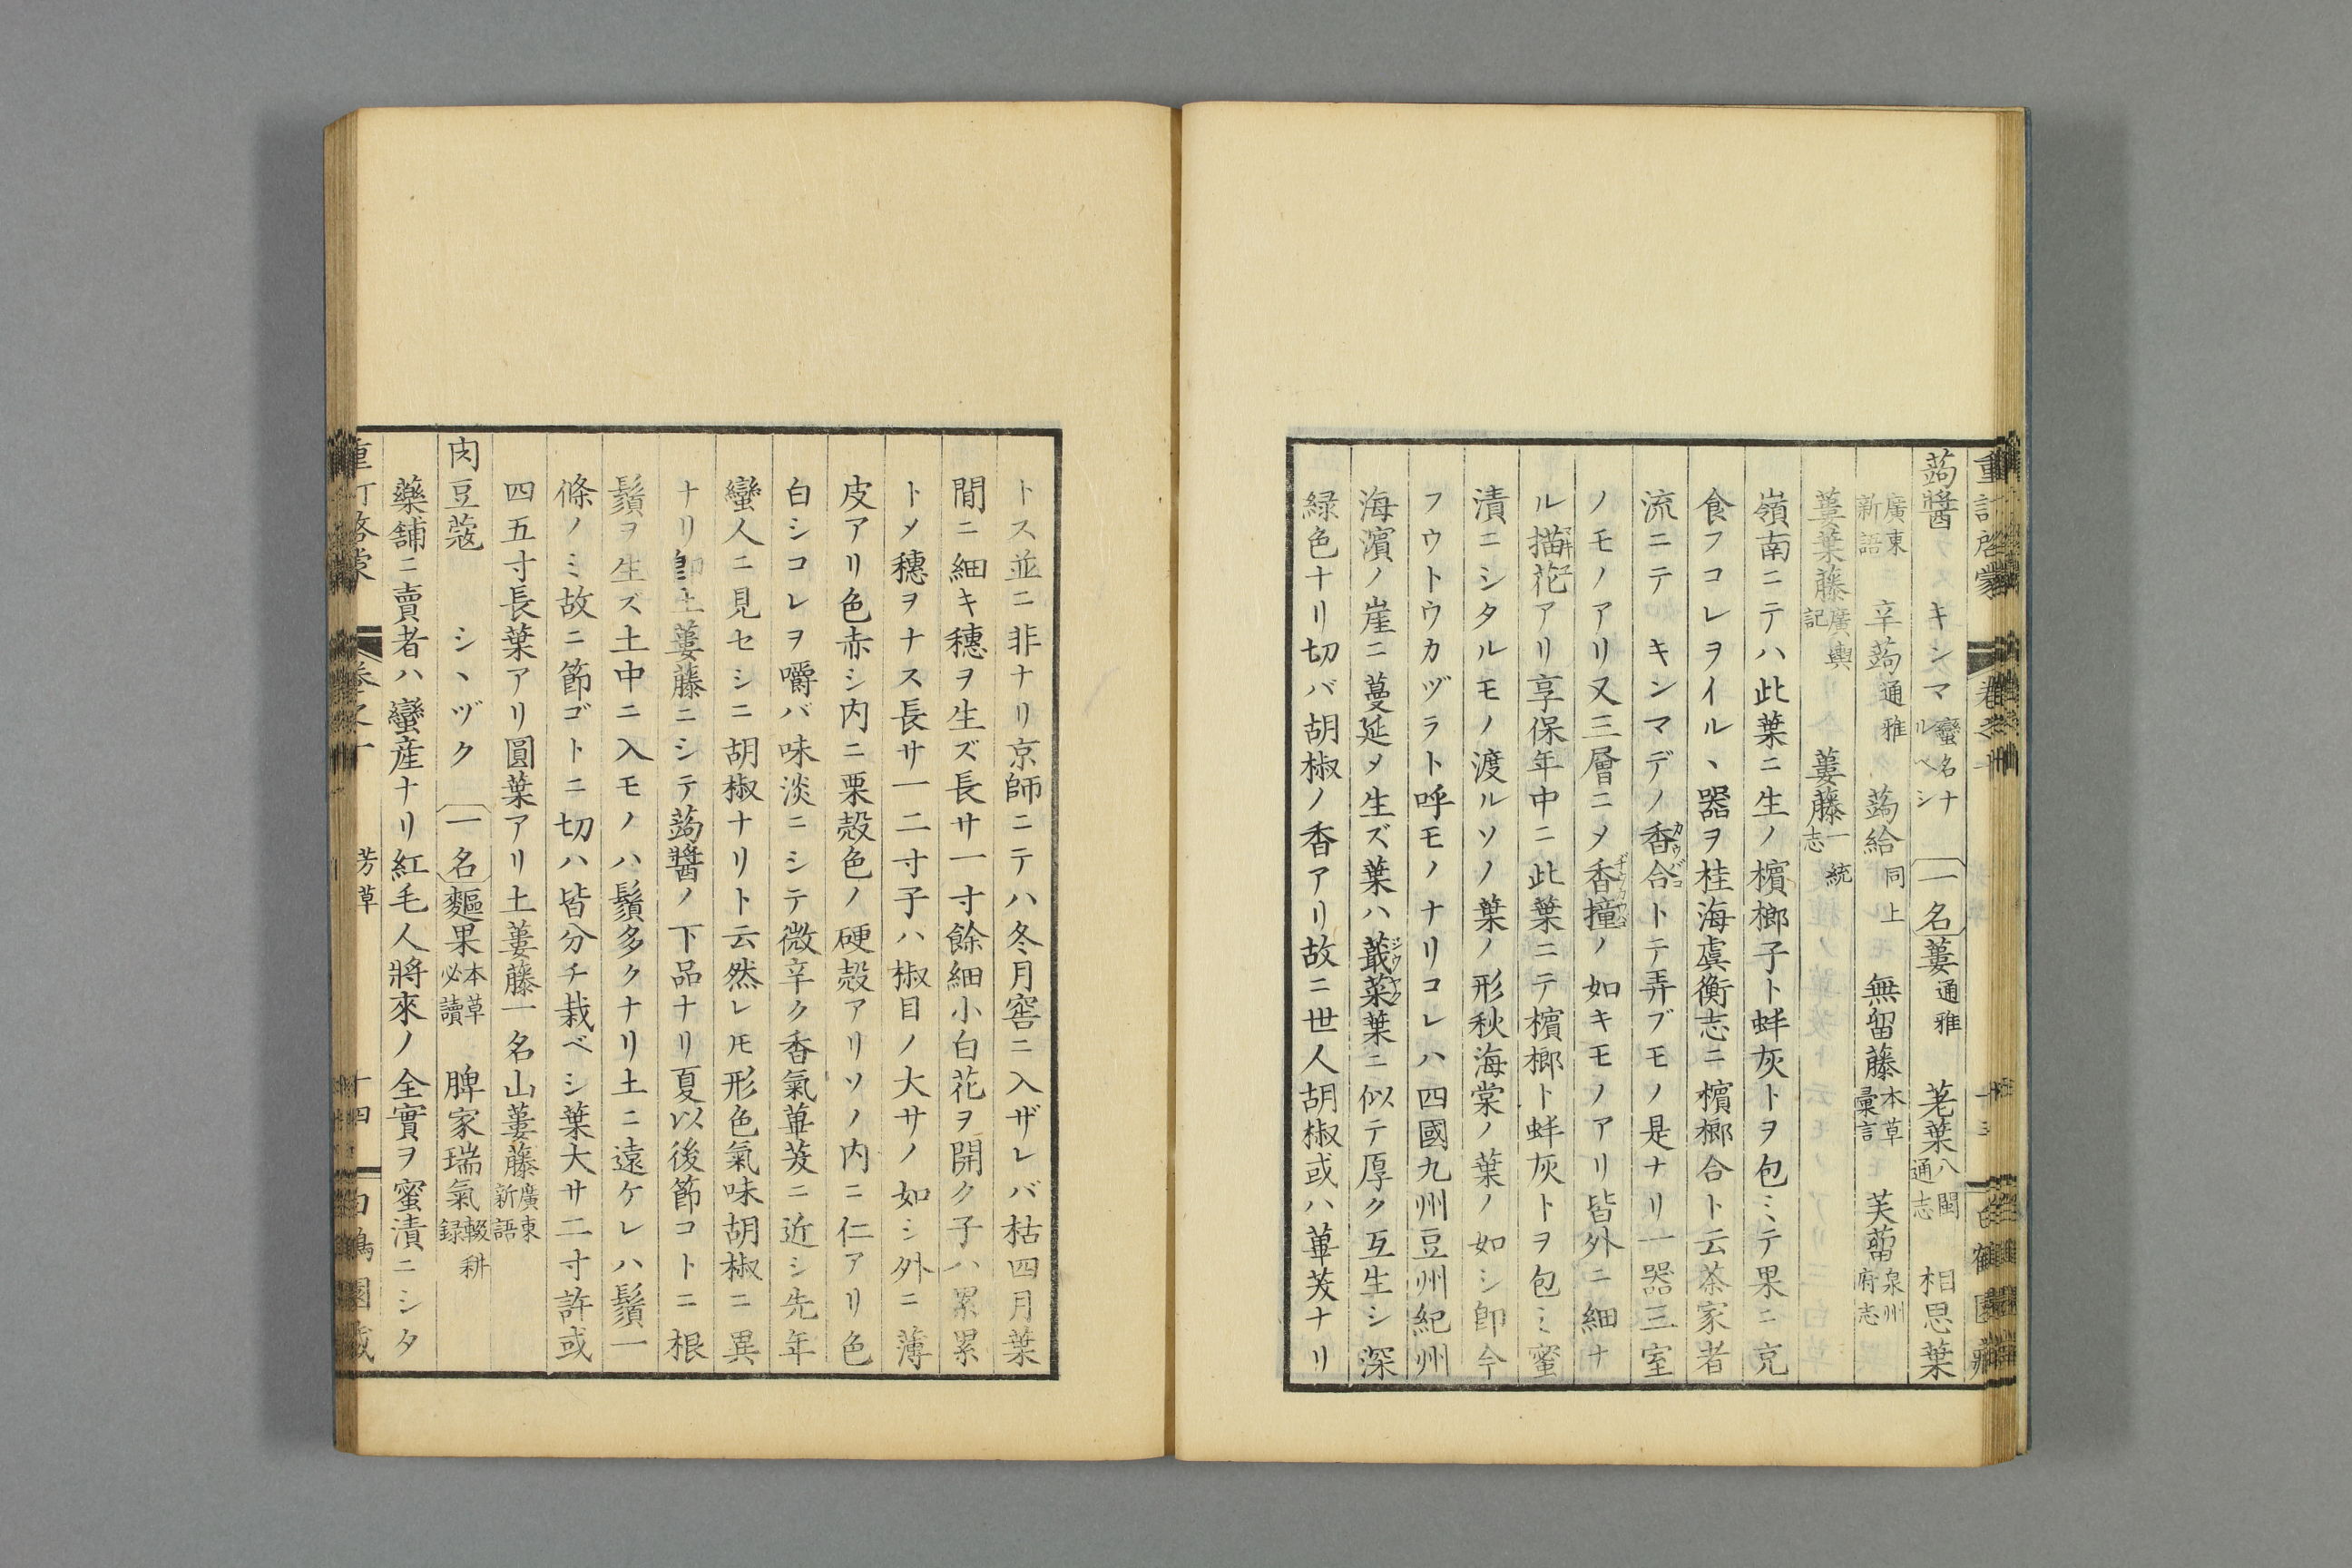 蒟醬 キンマ 蠻名ナルベシ 一名 蔞 通雅 荖葉 八閩通志 相思葉
廣東新語 辛蒟 通雅 蒟給 同上 無留藤 本草彙言 芙蔔 泉州府志
蔞葉藤 廣輿記 蔞藤 一統志
嶺南ニテハ此葉ニ生ノ檳榔子ト蚌灰トヲ包ミテ果ニ充
食フコレヲイルヽ器ヲ桂海虞衡志ニ檳榔合ト云茶家者
流ニテ キンマデノ香合トテ弄ブモノ是ナリ一器三室
ノモノアリ又三層ニメ香撞ノ如キモノアリ皆外ニ細ナ
ル描花アリ享保年中ニ此葉ニテ檳榔ト蚌灰トヲ包ミ蜜
漬ニシタルモノ渡ルソノ葉ノ形秋海棠ノ葉ノ如シ卽今
フウトウカヅラト呼モノナリコレハ四國九州豆州紀州
海濵ノ崖ニ蔓延メ生ズ葉ハ蕺菜葉ニ似テ厚ク互生シ深
緑色ナリ切バ胡椒ノ香アリ故ニ世人胡椒或ハ蓽茇ナリ
トス並ニ非ナリ京師ニテハ冬月窖ニ入ザレバ枯四月葉
間ニ細キ穗ヲ生ズ長サ一寸餘細小白花ヲ開ク子ハ累累
トメ穗ヲナス長サ一二寸子ハ椒目ノ大サノ如シ外ニ薄
皮アリ色赤シ内ニ栗殻色ノ硬殻アリソノ内ニ仁アリ色
白シコレヲ嚼バ味淡ニシテ微辛ク香氣蓽茇ニ近シ先年
蠻人ニ見セシニ胡椒ナリト云然レ𪜈形色氣味胡椒ニ異
ナリ卽土蔞藤ニシテ蒟醬ノ下品ナリ夏以後節コトニ根
鬚ヲ生ズ土中ニ入モノハ鬚多クナリ土ニ遠ケレハ鬚一
條ノミ故ニ節ゴトニ切ハ皆分チ栽ベシ葉大サ二寸許或
四五寸長葉アリ圓葉アリ土蔞藤一名山蔞藤 廣東新語
肉豆蔲 シヽヅク 一名 䴰果 本草必讀 脾家瑞氣 輟耕録
藥舗ニ賣者ハ蠻産ナリ紅毛人將來ノ全實ヲ蜜漬ニシタ